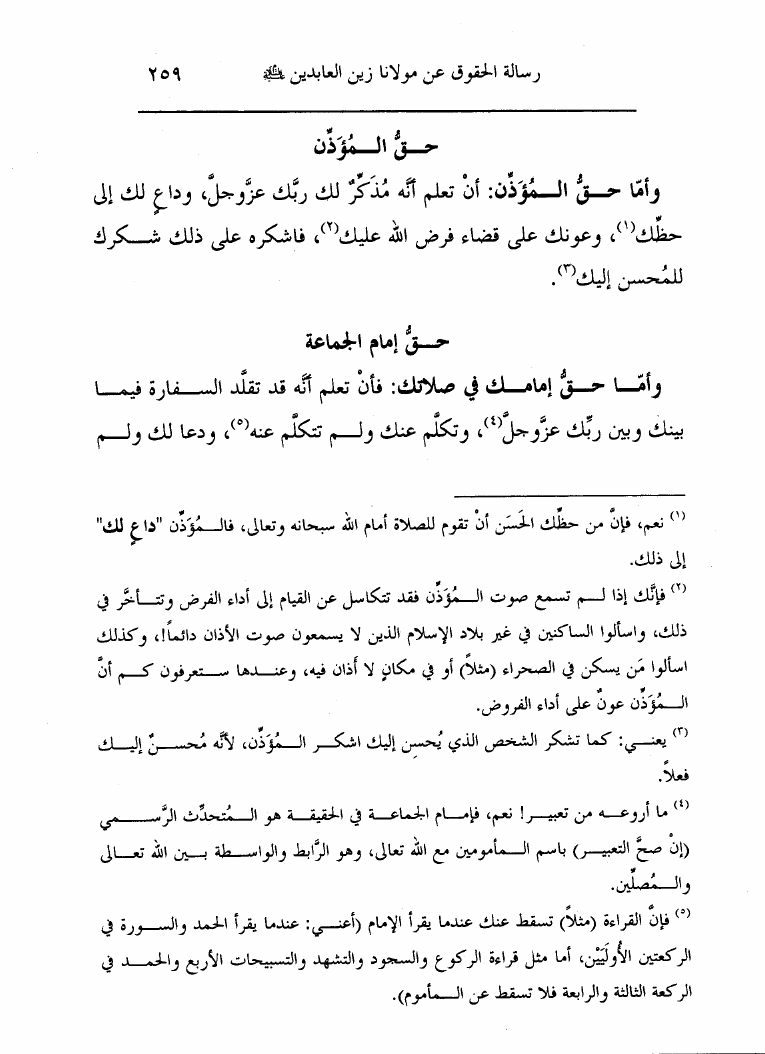 رسالة الحقوق عن مولانا زين العابدين ﷺ ٢٥٩
حقُّ المُؤذِّن
وأمّا حقُّ المُؤذِّن: أنْ تعلم أنَّه مُذَكِّرٌ لك ربَّك عزَّوجلَّ، وداعٍ لك إلى
حظِّك(١)، وعونك على قضاء فرض الله عليك(٢)، فاشكره على ذلك شكرك
للمُحسن إليك(٣).
حقُّ إمام الجماعة
وأمّا حقُّ إمامك في صلاتك: فأنْ تعلم أنَّه قد تقلَّد السفارة فيما
بينك وبين ربِّك عزَّوجلَّ(٤)، وتكلَّم عنك ولم تتكلَّم عنه(٥)، ودعا لك ولم
(١) نعم، فإنَّ من حظِّك الحَسَن أنْ تقوم للصلاة أمام الله سبحانه وتعالى، فالمُؤذِّن "داعٍ لك"
إلى ذلك.
(٢) فإنَّك إذا لم تسمع صوت المُؤذِّن فقد تتكاسل عن القيام إلى أداء الفرض وتتأخَّر في
ذلك، واسألوا الساكنين في غير بلاد الإسلام الذين لا يسمعون صوت الأذان دائماً!، وكذلك
اسألوا مَن يسكن في الصحراء (مثلاً) أو في مكانٍ لا أذان فيه، وعندها ستعرفون كم أنَّ
المُؤذِّن عونٌ على أداء الفروض.
(٣) يعني: كما تشكر الشخص الذي يُحسِن إليك اشكر المُؤذِّن، لأنَّه مُحسنٌ إليك
فعلاً.
(٤) ما أروعه من تعبير! نعم، فإمام الجماعة في الحقيقة هو المُتحدِّث الرَّسمي
(إنْ صحَّ التعبير) باسم المأمومين مع الله تعالى، وهو الرَّابط والواسطة بين الله تعالى
والمُصلِّين.
(٥) فإنَّ القراءة (مثلاً) تسقط عنك عندما يقرأ الإمام (أعني: عندما يقرأ الحمد والسورة في
الركعتين الأُوليَيْن، أما مثل قراءة الركوع والسجود والتشهد والتسبيحات الأربع والحمد في
الركعة الثالثة والرابعة فلا تسقط عن المأموم).